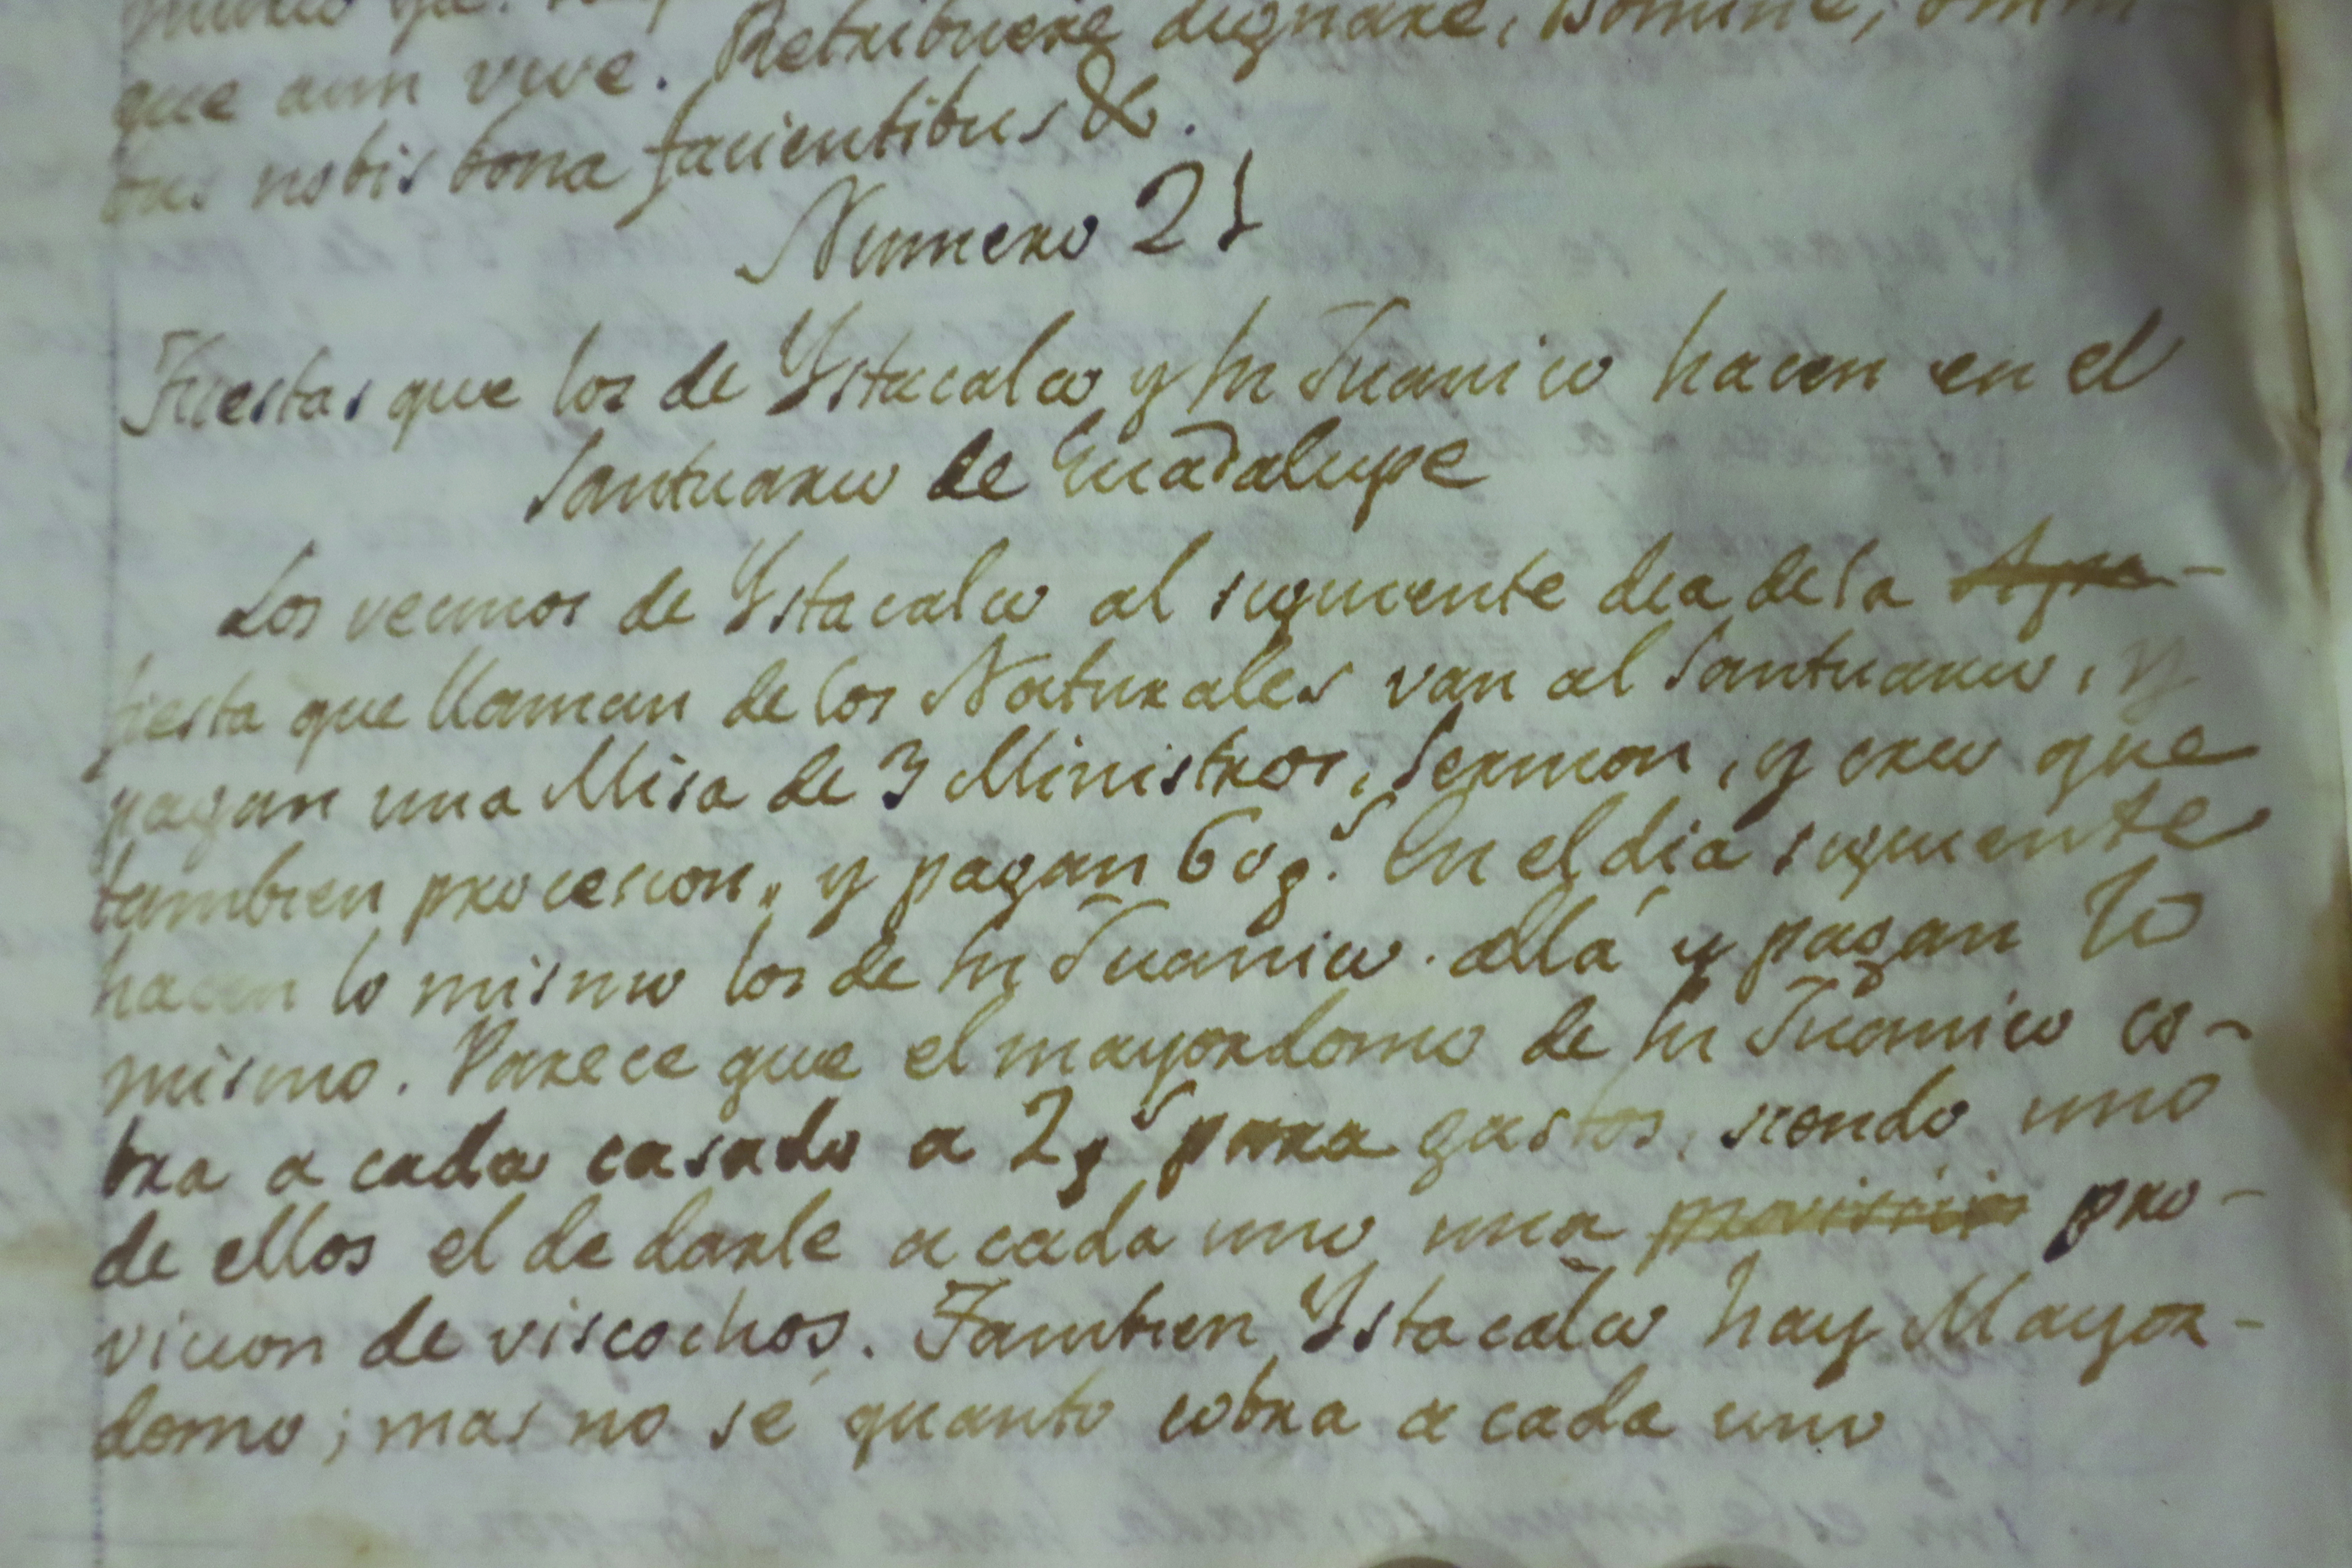 que aun vive. Retribuere dignare, Domine, omni
bus nobis bona facientibus &.
Numero 21
Fiestas que los de Ystacalco y Sn Juanico hacen en el
Santuario de Guadalupe
Los vecinos de Ystacalco al siguiente dia de la
fiesta que llaman de los Naturales van al Santuario, y
pagan una Misa de 3 Ministros, Sermon, y creo que
tambien procesion, y pagan 60 ps. En el dia siguiente
hacen lo mismo los de Sn Juanico. allá y pagan lo
mismo. Parece que el mayordomo de Sn Juanico co-
bra a cada casado a 2 ps para gastos, siendo uno
de ellos el de darle a cada uno una provision pro-
vicion de viscochos. Tambien Ystacalco hay Mayor-
domo; mas no sé quanto cobra a cada uno